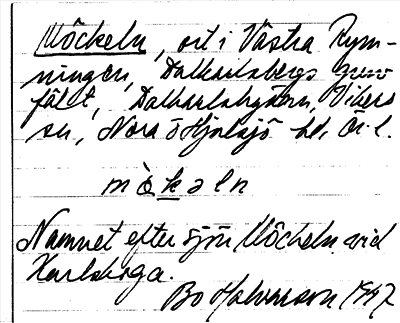 Möckeln, ort i Västra Rym-
ningen, Dalkarlsbergs gruv-
fält, Dalkarlshyttan, Vikers
sn, Nora o Hjulsjö bd, Ör. l.
m ò k ə l n
Namnet efter sjön Möckeln vid
Karlskoga.
Bo Halvarsson 1947